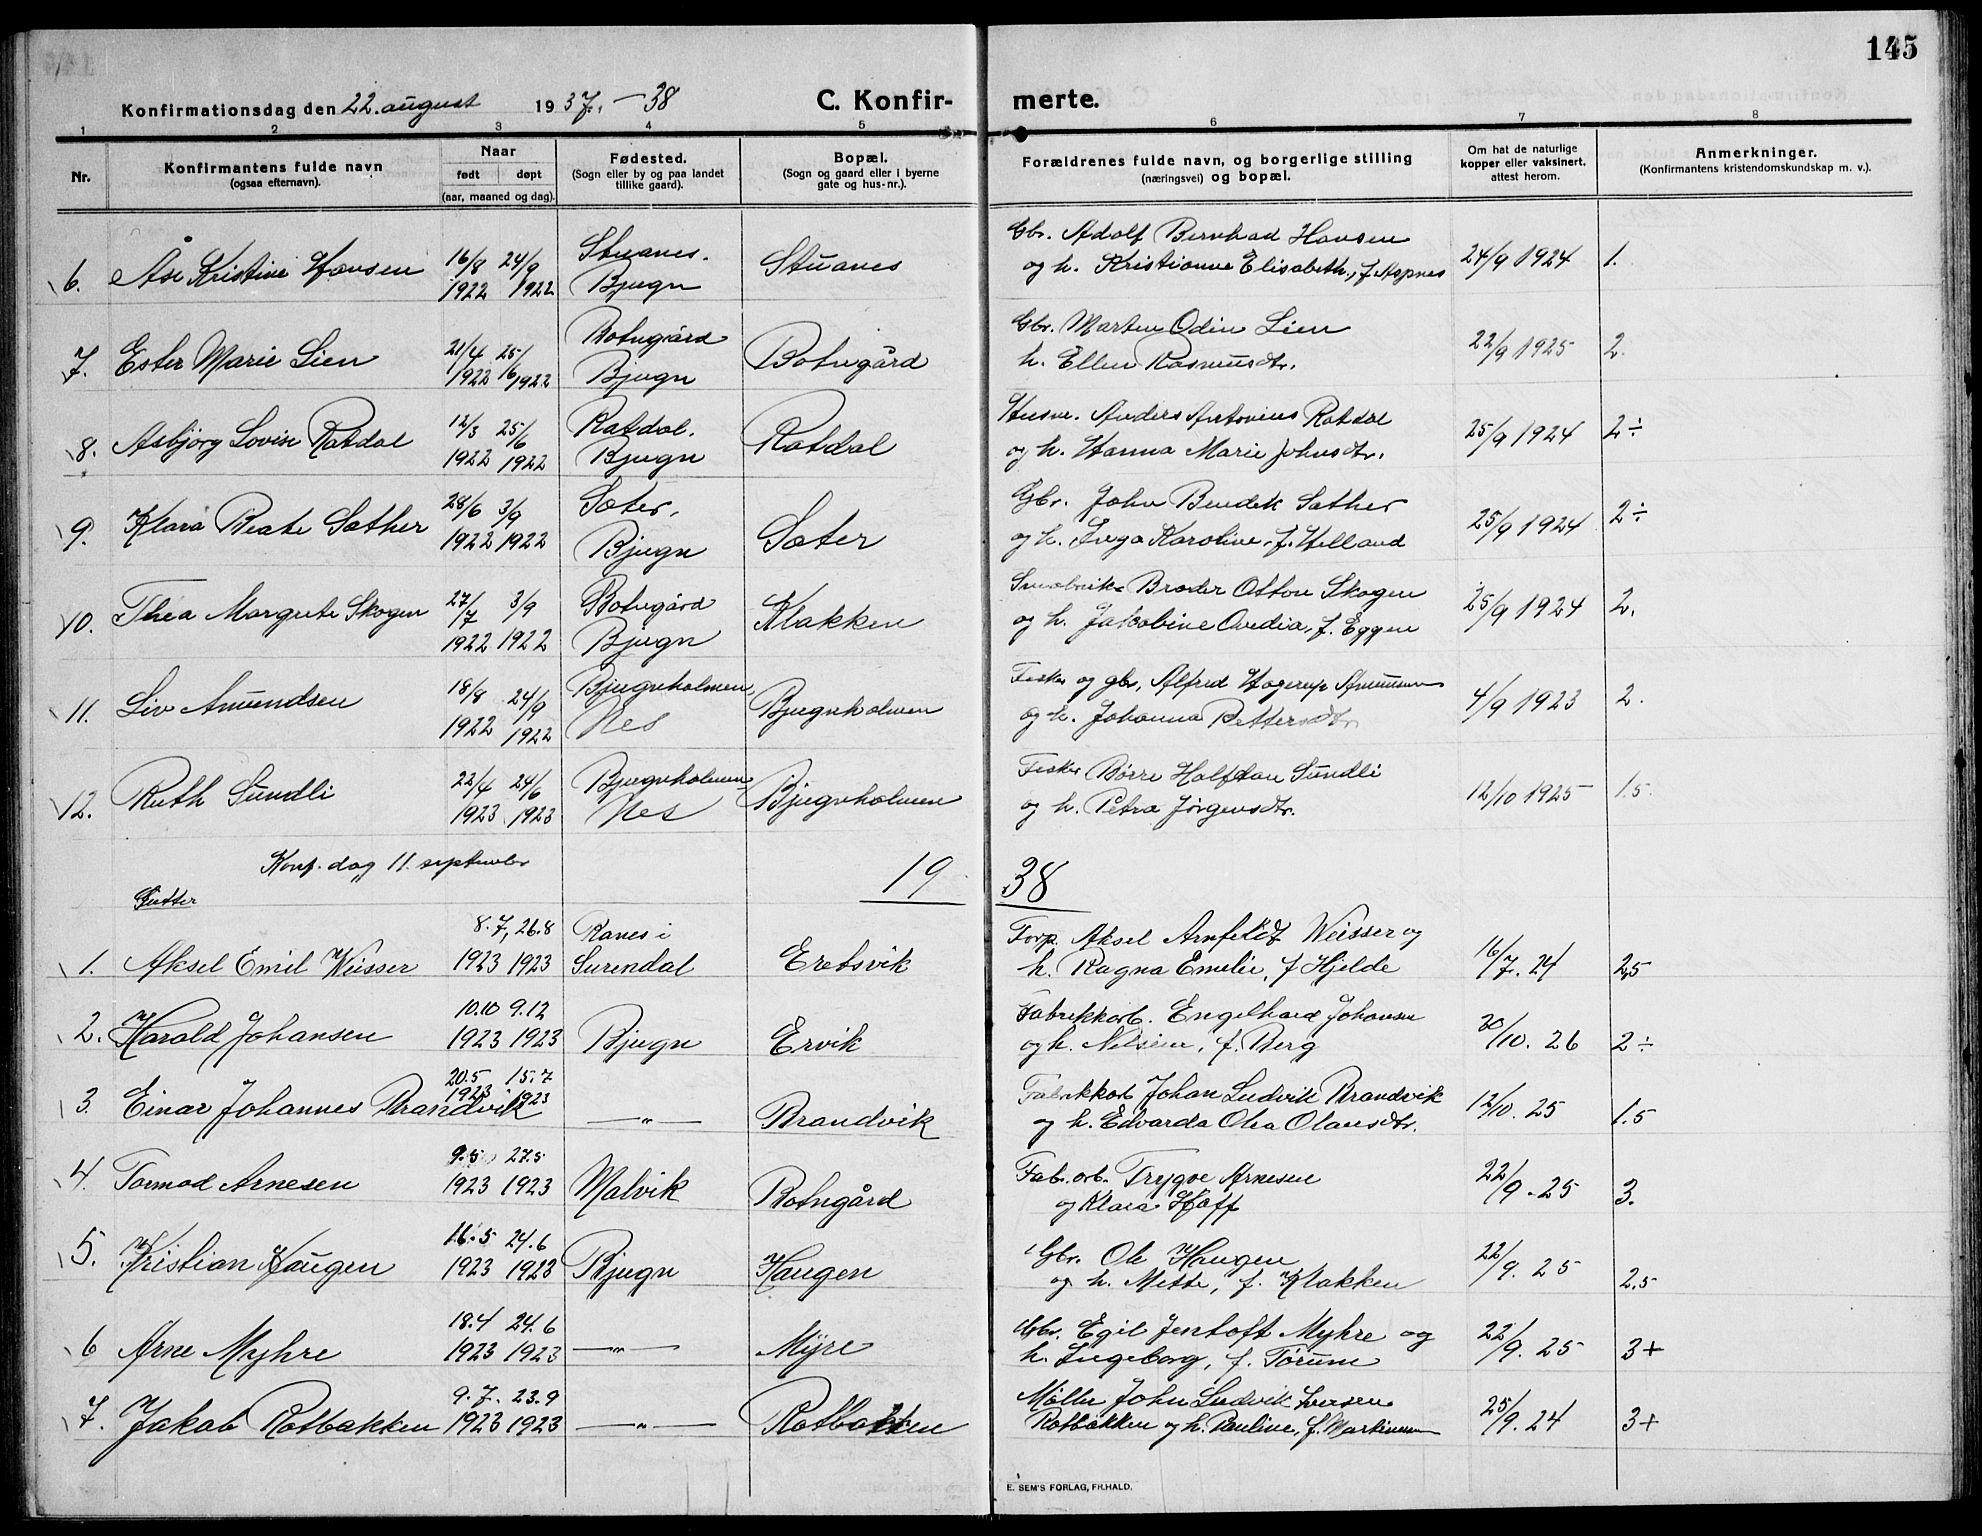 145
Konfirmationsdag den 22. august 1937. – 38
C. Konfir-
merte.
1 2 3 4 5 6 7 8
Nr.
Konfirmantens fulde navn
(ogsaa efternavn).
Naar
født døpt
(aar, maaned og dag).
Fødested.
(Sogn eller by og paa landet
tillike gaard).
Bopæl.
(Sogn og gaard eller i byerne
gate og hus-nr.).
Forældrenes fulde navn, og borgerlige stilling
(næringsvei) og bopæl.
Om hat de naturlige
kopper eller vaksinert,
attest herom.
Anmerkninger.
(Konfirmantens kristendomskundskap m. v.).
6. Åse Kristine Hansen 16/8 1922 24/9 1922 Stuanes. Bjugn Stuanes
Gbr. Adolf Bernhad Hansen
og h. Kristianne Elisabeth, f. Aspnes 24/9 1924 1.
7. Ester Marie Lien 21/4 1922 25/6 1922 Botngård Bjugn Botngård
Gbr. Marten Odin Lien
h. Ellen Rasmusdtr. 22/9 1925 2.
8. Asbjørg Lovise Ratdal 12/3 1922 25/6 1922 Ratdal. Bjugn Ratdal
Husm. Anders Antonius Ratdal
og h. Hanna Marie Johnsdtr. 25/9 1924 2÷
9. Klara Beate Sæther 28/6 1922 3/9 1922 Sæter. Bjugn Sæter
Gbr. John Bendik Sæther
og h. Inga Karoline, f. Helland 25/9 1924 2÷
10. Thea Margrete Skogen 27/7 1922 3/9 1922 Botngård Bjugn Klakken
Småbruk. Broder Otton Skogen
og h. Jakobine Ovedia, f. Eggen 25/9 1924 2.
11. Liv Amundsen 18/8 1922 24/9 1922 Bjugnholmen Nes Bjugnholmen
Fisker og gbr. Alfred Hagerup Amundsen
og h. Johanna Pettersdtr. 4/9 1923 2.
12. Ruth Sundli 22/4 1923 24/6 1923 Bjugnholmen Nes Bjugnholmen
Fisker Børre Halfdan Sundli
og h. Petra Jørgensdtr. 12/10 1925 1.5
Konf. dag 11. september 19 38
Gutter
1. Aksel Emil Weisser 8.7, 1923 26.8 1923 Ranes i Surendal Eretsvik
Forp. Aksel Arnfeldt Weisser og
h. Ragna Emelie, f. Hjelde 16/7. 24 2,5
2. Harald Johansen 10.10 1923 9.12 1923 Bjugn Ervik
Fabrikkarb. Engelhard Johansen
og h. f. Berg 30/10. 26 2÷
3. Einar Johannes Brandvik 20.5 1923 15.7 1923 —"— Brandvik
Fabrikkarb Johan Ludvik Brandvik
og h. Edvarda Olea Olausdtr. 12/10. 25 1.5
4. Tormod Arnesen 9.5 1923 27.5 1923 Malvik Botngård
Fab. arb. Trygve Arnesen
og Klara Hoff 22/9. 25 3.
5. Kristian Haugen 16.5 1923 24.6 1923 Bjugn Haugen
Gbr. Ole Haugen
og h. Mette, f. Klakken 22/9. 25 2.5
6 Arne Myhre 18.4 1923 24.6 1923 —"— Myre
Gbr. Egil Jentoft Myhre og
h. Ingeborg, f. Tørum 22/9. 25 3+
7. Jakob Rotbakken 9.7. 1923 23.9 1923 —"— Rotbakken
Møller John Ludvik Iversen
Rotbakken og h. Pauline, f. Martinsen 25/9. 24 3+
E. SEM'S FORLAG, FR.HALD.